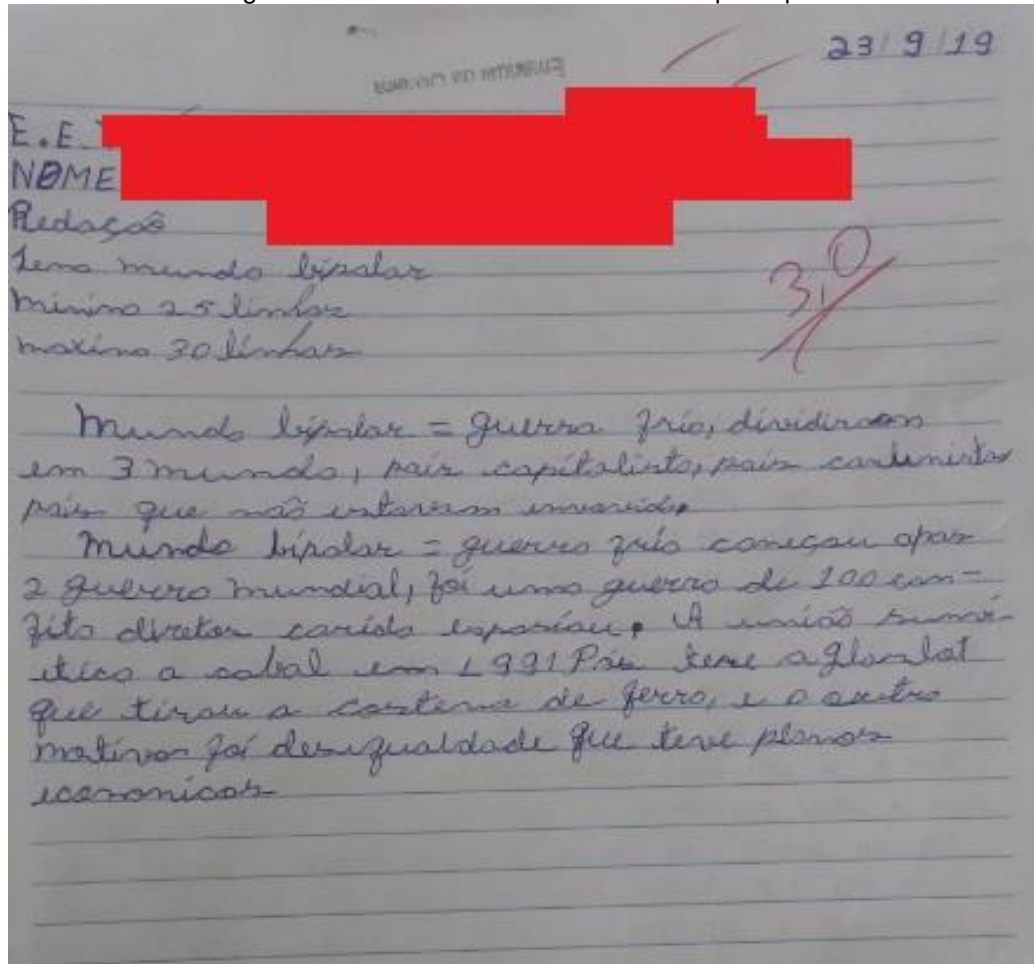 23/9/19
E.E.
NOME
Redação
Tema mundo bipolar
minimo 25 linhas
maximo 30 linhas
3,0
Mundo bipolar = guerra fria, dividiram
em 3 mundo, país capitalista, país
país que não estavam
Mundo bipolar = guerra fria começou apos
2 guerra mundial, foi uma guerra de
fito diretor corrida A união
a em 1991 Pois teve a
que tirou a de ferro, e o outro
motivos foi desigualdade que teve planos